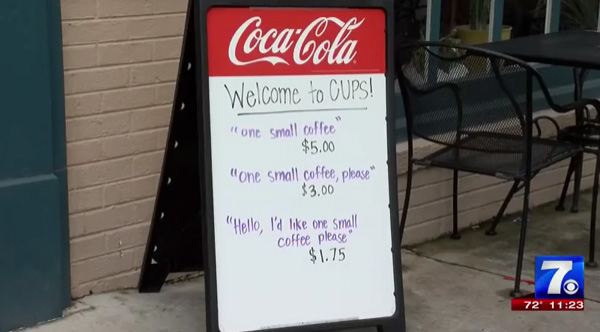 Coca-Cola
Welcome to CUPS!
"one small coffee"
$5.00
"One small coffee, please"
$3.00
"Hello, I'd like one small
coffee please"
$1.75
7
72° 11:23